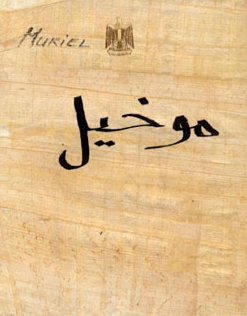 MURIEL
موخيل